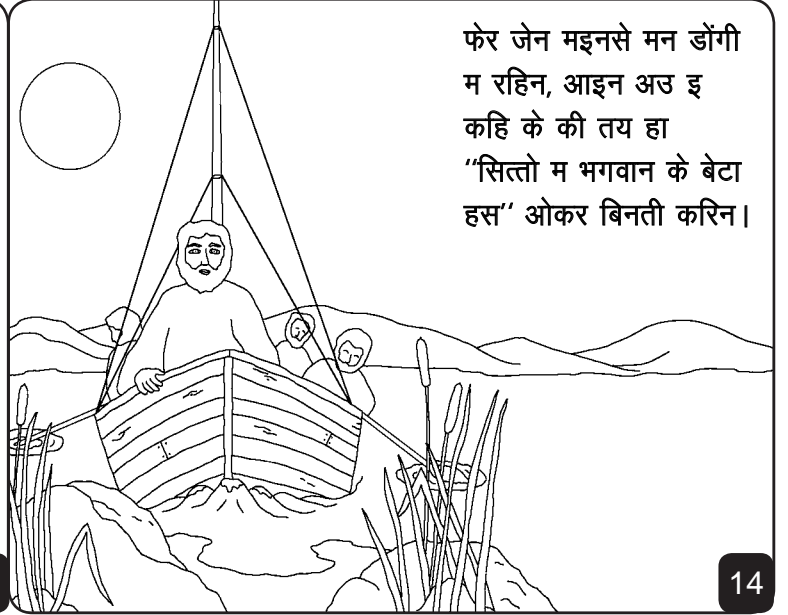 फेर जेन मइनसे मन डोंगी
म रहिन, आइन अउ इ
कहि के की तय हा
‘‘सित्तो म भगवान के बेटा
हस’‘ ओकर बिनती करिन।
14